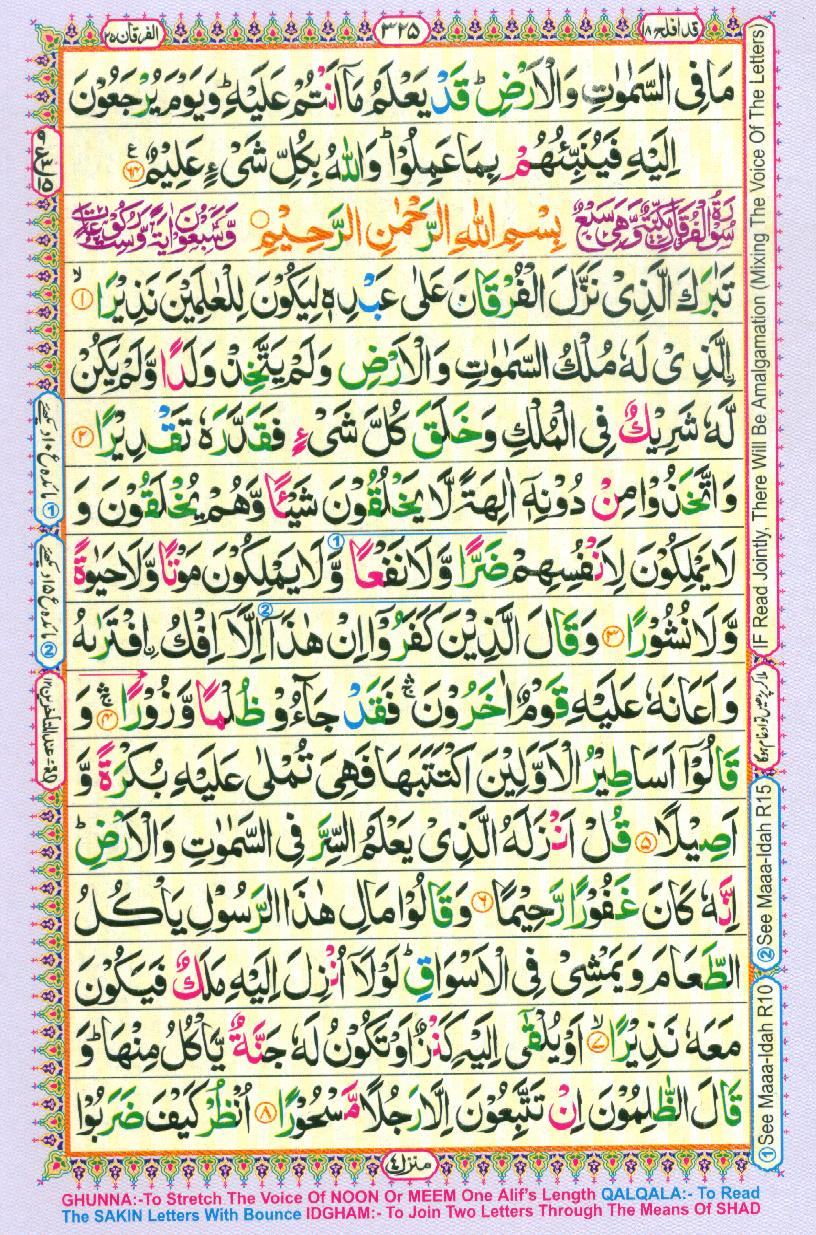 قد افلح ۱۸
۳۲۵
الفرقان ۲۵
مَا فِی السَّمٰوٰتِ وَالْاَرْضِ ؕ قَدْ یَعْلَمُ مَاۤ اَنْتُمْ عَلَیْهِ ؕ وَیَوْمَ یُرْجَعُوْنَ
اِلَیْهِ فَیُنَبِّئُهُمْ بِمَا عَمِلُوْا ؕ وَاللّٰهُ بِكُلِّ شَیْءٍ عَلِیْمٌ ۶۴
سُوْرَةُ الْفُرْقَانِ مَكِّیَّةٌ وَّهِیَ سَبْعٌ بِسْمِ اللّٰهِ الرَّحْمٰنِ الرَّحِیْمِ وَّسَبْعُوْنَ اٰیَةً وَّسِتُّ رُكُوْعَاتٍ
تَبٰرَكَ الَّذِیْ نَزَّلَ الْفُرْقَانَ عَلٰی عَبْدِهٖ لِیَكُوْنَ لِلْعٰلَمِیْنَ نَذِیْرًا ۱ۙ
اِلَّذِیْ لَهٗ مُلْكُ السَّمٰوٰتِ وَالْاَرْضِ وَلَمْ یَتَّخِذْ وَلَدًا وَّلَمْ یَكُنْ
لَّهٗ شَرِیْكٌ فِی الْمُلْكِ وَخَلَقَ كُلَّ شَیْءٍ فَقَدَّرَهٗ تَقْدِیْرًا ۲
وَاتَّخَذُوْا مِنْ دُوْنِهٖۤ اٰلِهَةً لَّا یَخْلُقُوْنَ شَیْـًٔا وَّهُمْ یُخْلَقُوْنَ وَ
لَا یَمْلِكُوْنَ لِاَنْفُسِهِمْ ضَرًّا وَّلَا نَفْعًا وَّلَا یَمْلِكُوْنَ مَوْتًا وَّلَا حَیٰوةً
وَّلَا نُشُوْرًا ۳ وَقَالَ الَّذِیْنَ كَفَرُوْۤا اِنْ هٰذَاۤ اِلَّاۤ اِفْكُ ِ۟افْتَرٰىهُ
وَاَعَانَهٗ عَلَیْهِ قَوْمٌ اٰخَرُوْنَ ۛۚ فَقَدْ جَآءُوْ ظُلْمًا وَّزُوْرًا ۴ۛۚ وَ
قَالُوْۤا اَسَاطِیْرُ الْاَوَّلِیْنَ اكْتَتَبَهَا فَهِیَ تُمْلٰی عَلَیْهِ بُكْرَةً وَّ
اَصِیْلًا ۵ قُلْ اَنْزَلَهُ الَّذِیْ یَعْلَمُ السِّرَّ فِی السَّمٰوٰتِ وَالْاَرْضِ ؕ
اِنَّهٗ كَانَ غَفُوْرًا رَّحِیْمًا ۶ وَقَالُوْا مَالِ هٰذَا الرَّسُوْلِ یَاْكُلُ
الطَّعَامَ وَیَمْشِیْ فِی الْاَسْوَاقِ ؕ لَوْلَاۤ اُنْزِلَ اِلَیْهِ مَلَكٌ فَیَكُوْنَ
مَعَهٗ نَذِیْرًا ۷ۙ اَوْ یُلْقٰۤی اِلَیْهِ كَنْزٌ اَوْ تَكُوْنُ لَهٗ جَنَّةٌ یَّاْكُلُ مِنْهَا ؕ وَ
قَالَ الظّٰلِمُوْنَ اِنْ تَتَّبِعُوْنَ اِلَّا رَجُلًا مَّسْحُوْرًا ۸ اُنْظُرْ كَیْفَ ضَرَبُوْا
منزل ۴
IF Read Jointly, There Will Be Amalgamation (Mixing The Voice Of The Letters)
② See Maaa-Idah R15
① See Maaa-Idah R10
① مائدہ ع ۱۰ دیکھئے
② مائدہ ع ۱۵ دیکھئے
GHUNNA:-To Stretch The Voice Of NOON Or MEEM One Alif's Length QALQALA:- To Read
The SAKIN Letters With Bounce IDGHAM:- To Join Two Letters Through The Means Of SHAD